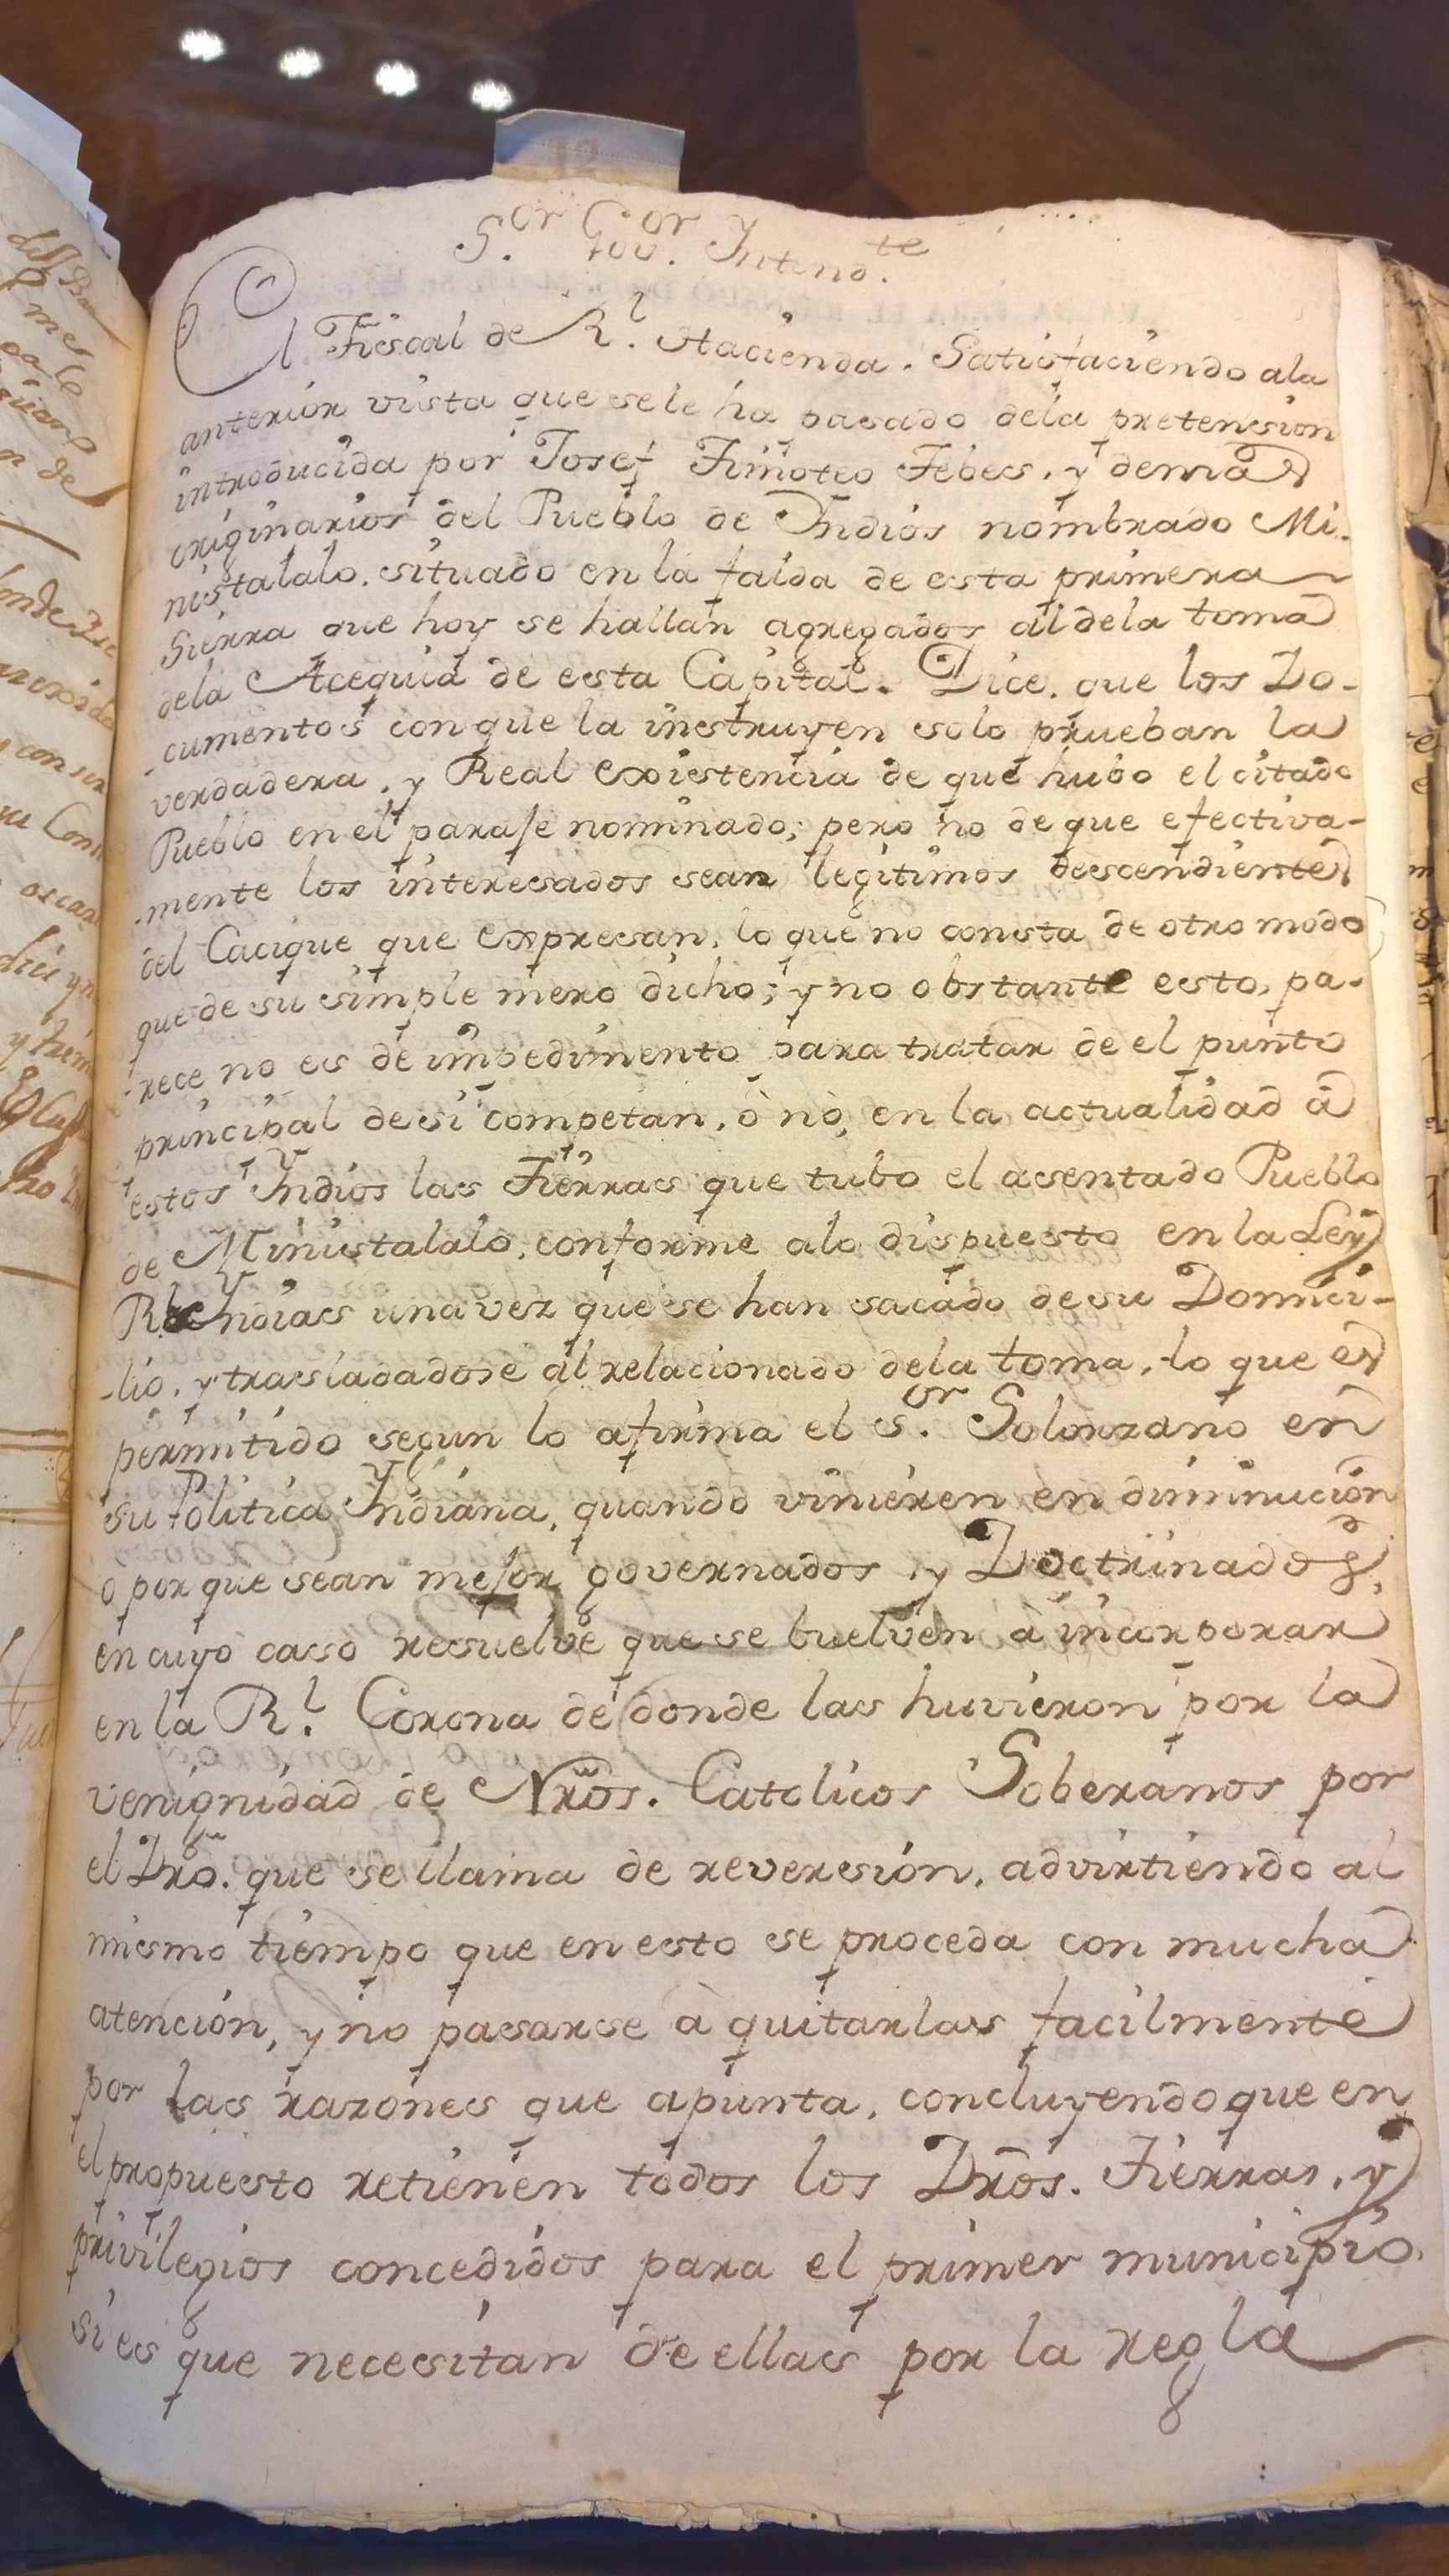 S.or Gov.or Yntend.te
El Fiscal de R.l Hacienda. Satisfaciendo ala
anterior vista que sele ha pasado dela pretension
introducida por Josef Timoteo Febes, y demas
originarios del Pueblo de Indios nombrado Mi-
nistalalo, situado en la falda de esta primera
Sierra que hoy se hallan agregados al dela toma
dela Acequia de esta Capital. Dice, que los Do-
-cumentos con que la instruyen solo prueban la
verdadera, y Real Existencia de que hubo el citado
Pueblo en el paraje nominado; pero no de que efectiva-
-mente los interesados sean legitimos descendientes
del Cacique que Expresan, lo que no consta de otro modo
que de su simple mero dicho; y no obstante esto, pa-
-rece no es de impedimento para tratar de el punto
principal de si competan, ò nò, en la actualidad â
estos Yndios las Tierras que tubo el asentado Pueblo
de Ministalalo, conforme alo dispuesto en la Ley
R.l de Yndias una vez que se han sacado de su Domici-
-lio, y trasladadose al relacionado dela toma, lo que es
permitido segun lo afirma el S.or Solorzano en
su Politica Yndiana, quando vinieren en diminucion
o por que sean mejor governados y Doctrinados,
en cuyo caso resuelve que se buelven à incorporar
en la R.l Corona de donde las huvieron por la
venignidad de Nrõs. Catolicos Soberanos por
el Drõ. que se llama de reversion, advirtiendo al
mismo tiempo que en esto se proceda con mucha
atencion, y no pasarse à quitarlas facilmente
por las razones que apunta, concluyendo que en
el propuesto retienen todos los Drõs. Tierras, y
privilegios concedidos para el primer municipio,
si es que necesitan de ellas por la regla